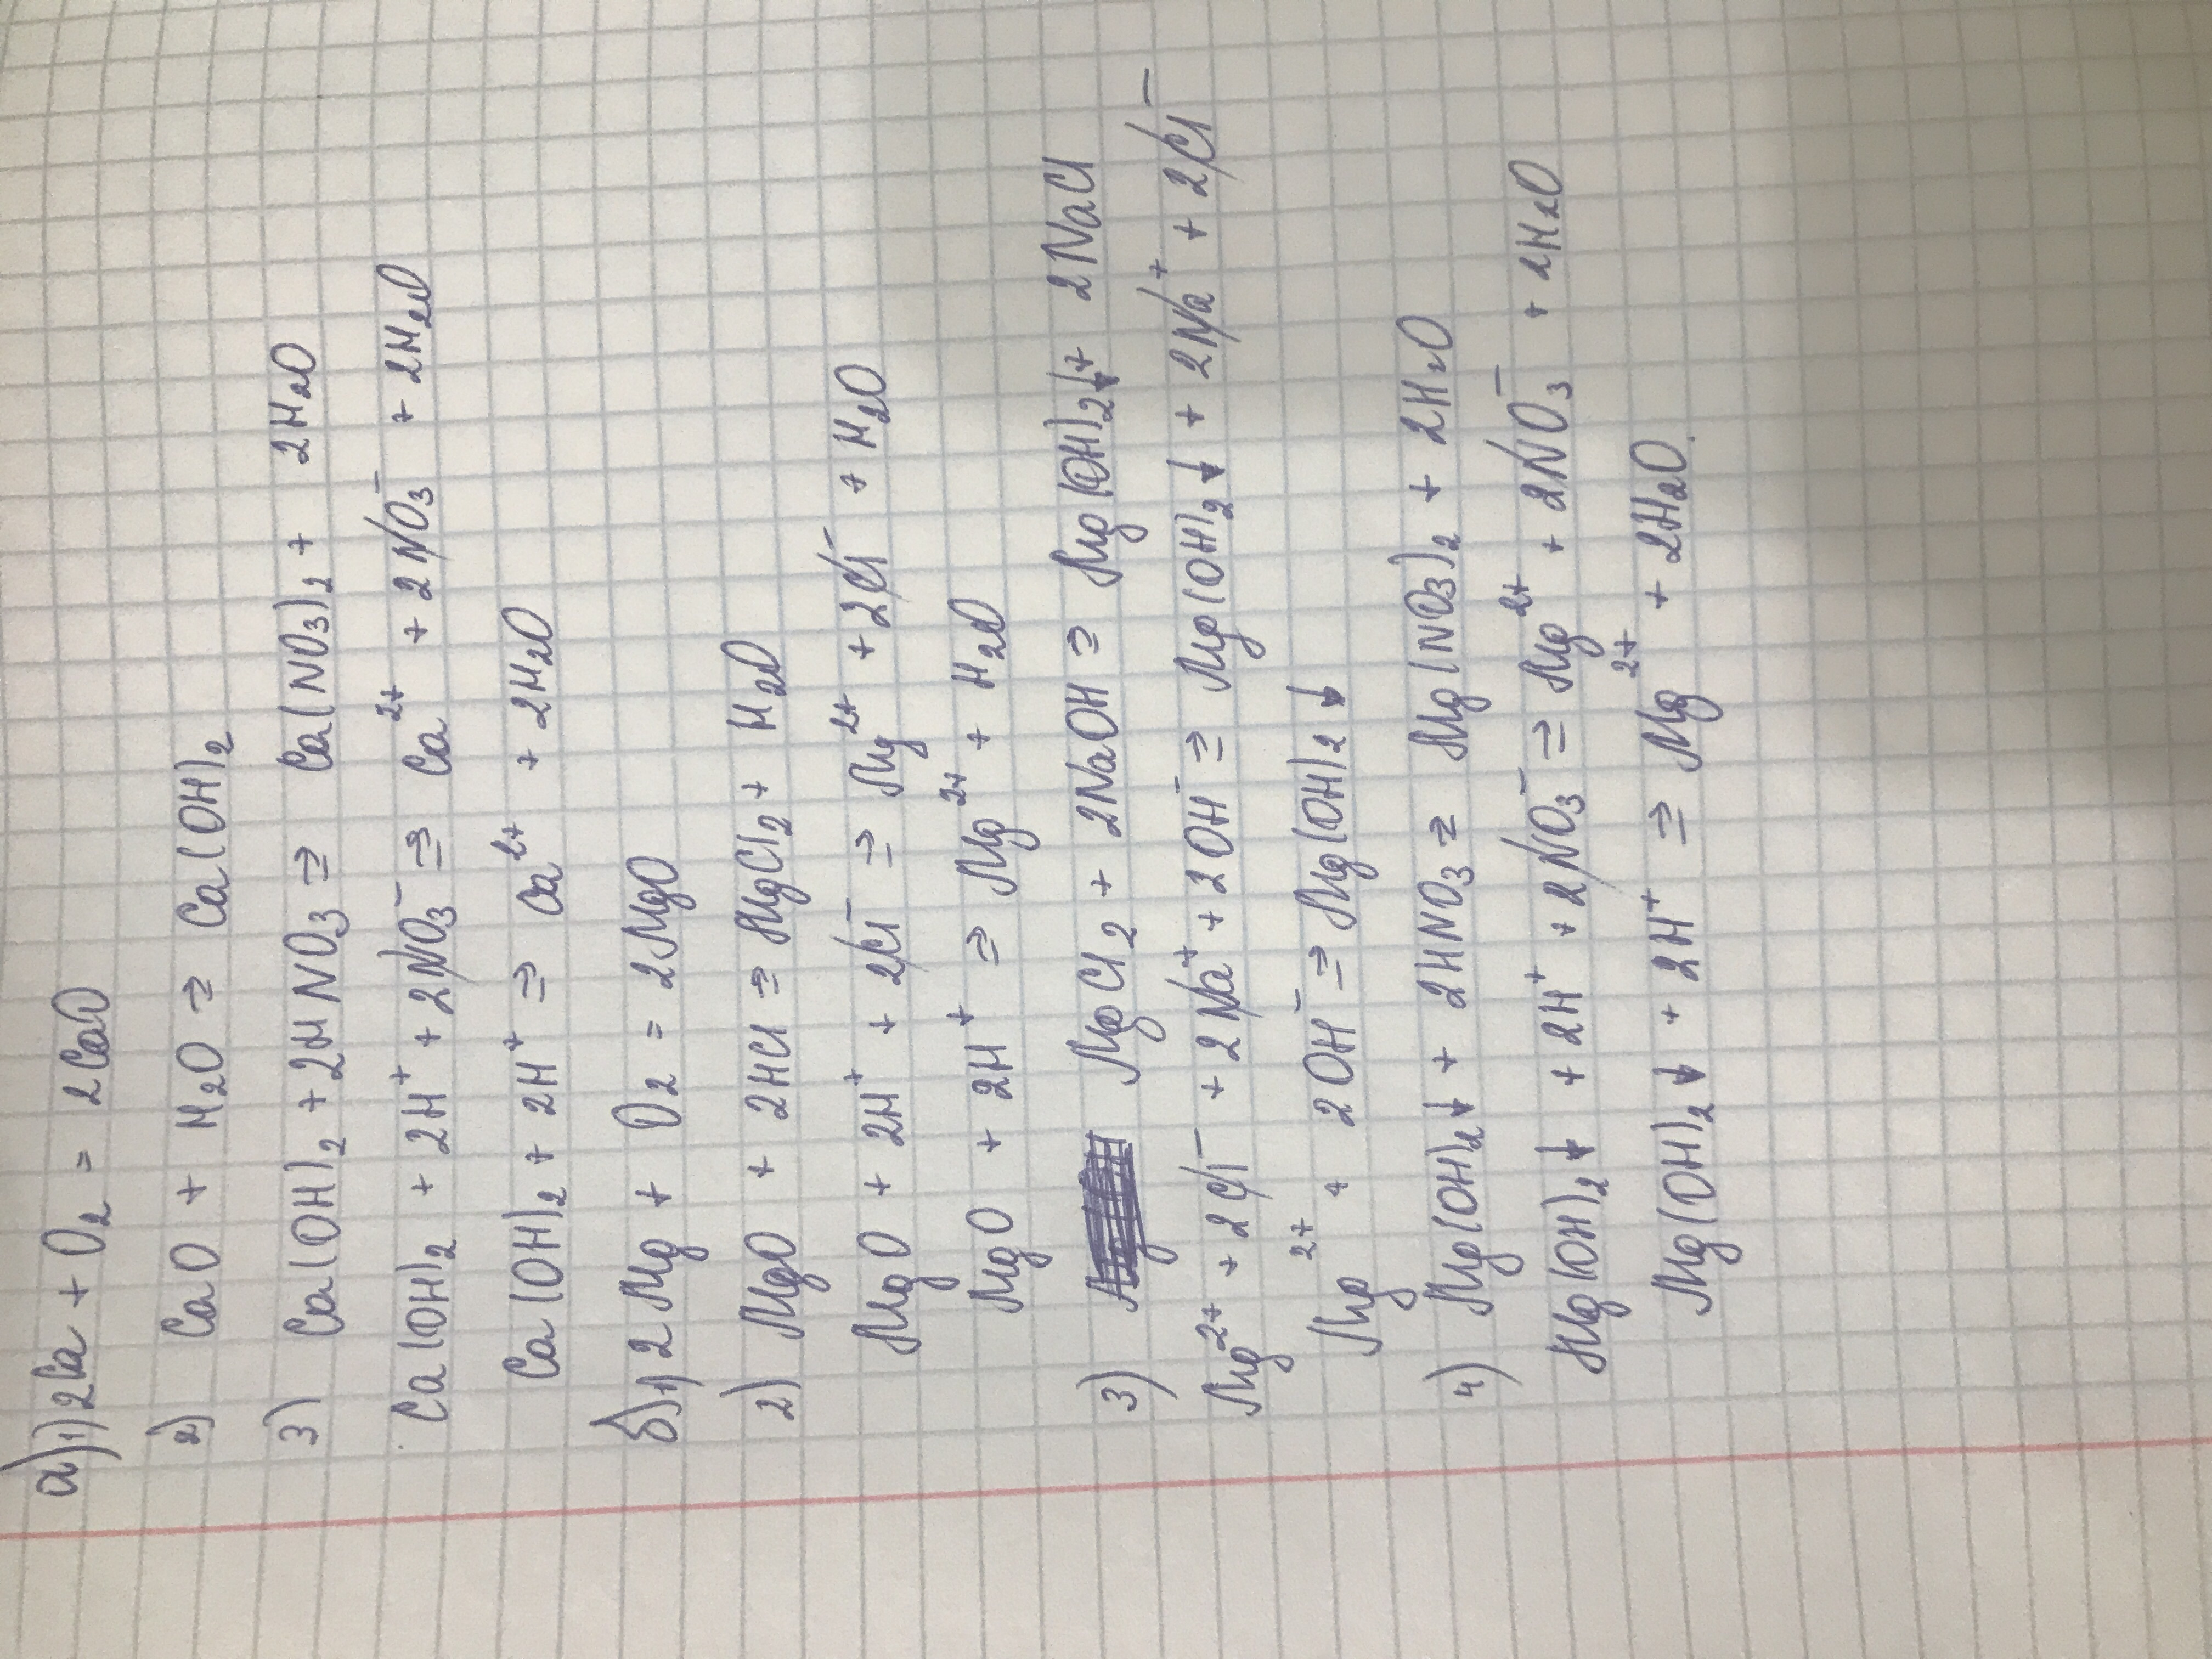 а) 1) 2Ca + O₂ = 2CaO
2) CaO + H₂O ⇒ Ca(OH)₂
3) Ca(OH)₂ + 2HNO₃ ⇒ Ca(NO₃)₂ + 2H₂O
Ca(OH)₂ + 2H⁺ + 2NO₃⁻ ⇒ Ca²⁺ + 2NO₃⁻ + 2H₂O
Ca(OH)₂ + 2H⁺ ⇒ Ca²⁺ + 2H₂O
б) 1) 2Mg + O₂ = 2MgO
2) MgO + 2HCl ⇒ MgCl₂ + H₂O
MgO + 2H⁺ + 2Cl⁻ ⇒ Mg²⁺ + 2Cl⁻ + H₂O
MgO + 2H⁺ ⇒ Mg²⁺ + H₂O
3) MgCl₂ + 2NaOH ⇒ Mg(OH)₂↓ + 2NaCl
Mg²⁺ + 2Cl⁻ + 2Na⁺ + 2OH⁻ ⇒ Mg(OH)₂↓ + 2Na⁺ + 2Cl⁻
Mg²⁺ + 2OH⁻ ⇒ Mg(OH)₂↓
4) Mg(OH)₂↓ + 2HNO₃ = Mg(NO₃)₂ + 2H₂O
Mg(OH)₂↓ + 2H⁺ + 2NO₃⁻ ⇒ Mg²⁺ + 2NO₃⁻ + 2H₂O
Mg(OH)₂↓ + 2H⁺ ⇒ Mg²⁺ + 2H₂O.